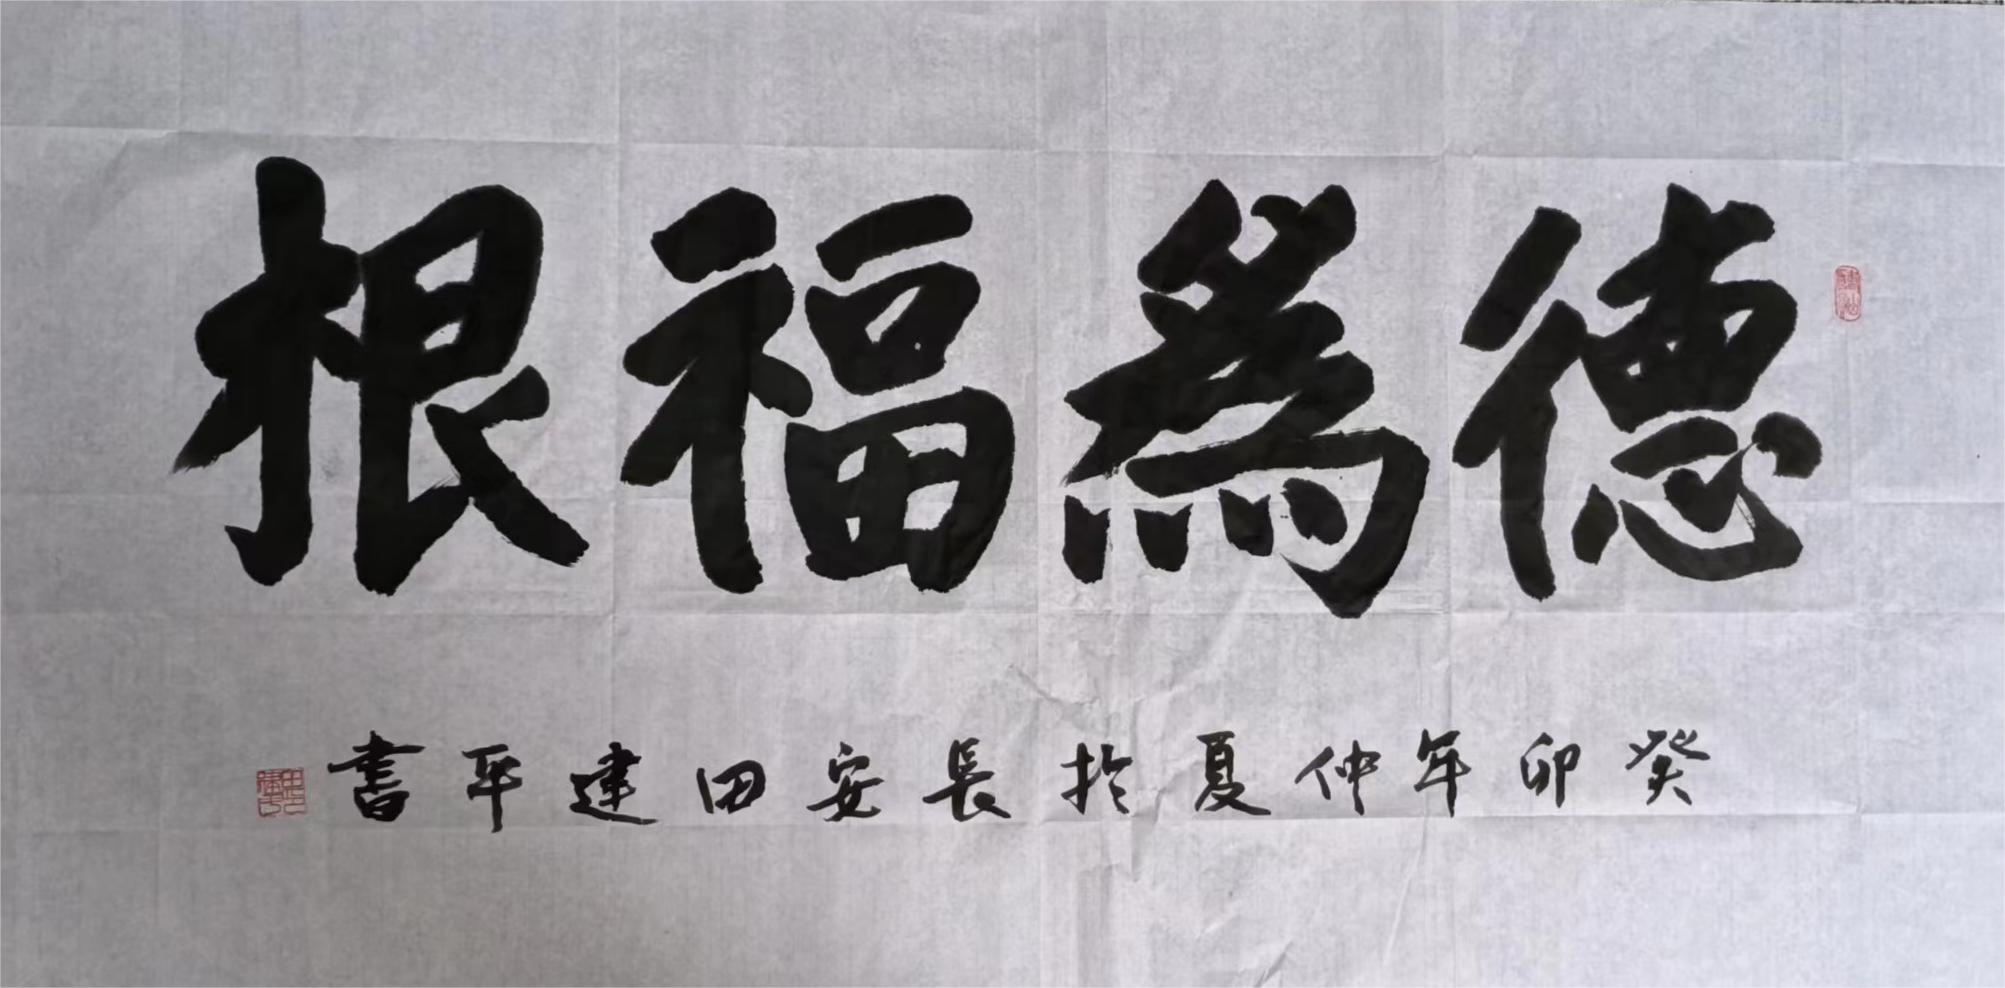 德為福根
癸卯年仲夏於長安田建平書